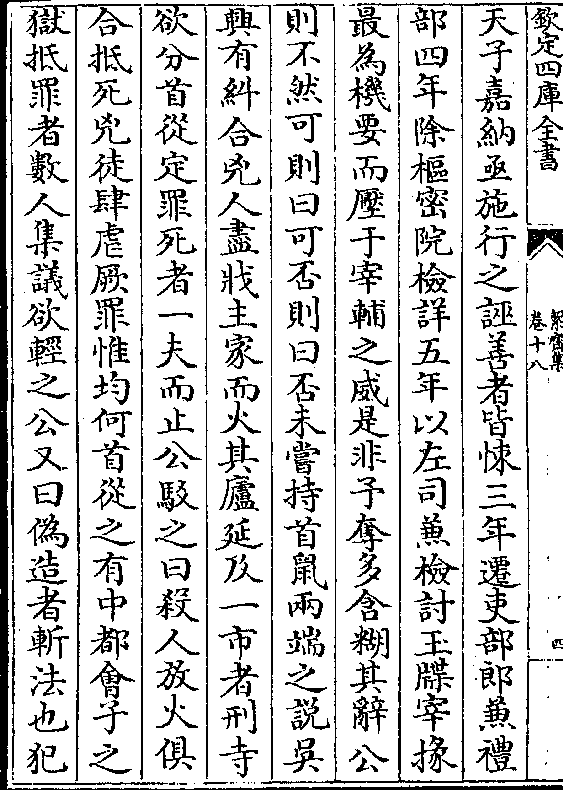 欽定四庫全書
絜齋集
卷十八
四
天子嘉納亟施行之誣善者皆悚三年遷吏部郎兼禮
部四年除樞密院檢詳五年以左司兼檢討玉牒宰掾
最為機要而壓于宰輔之威是非予奪多含糊其辭公
則不然可則曰可否則曰否未嘗持首鼠兩端之説吳
興有糾合兇人盡戕主家而火其廬延及一市者刑寺
欲分首從定罪死者一夫而止公駁之曰殺人放火俱
合抵死兇徒肆虐厥罪惟均何首從之有中都會子之
獄抵罪者數人集議欲輕之公又曰偽造者斬法也犯